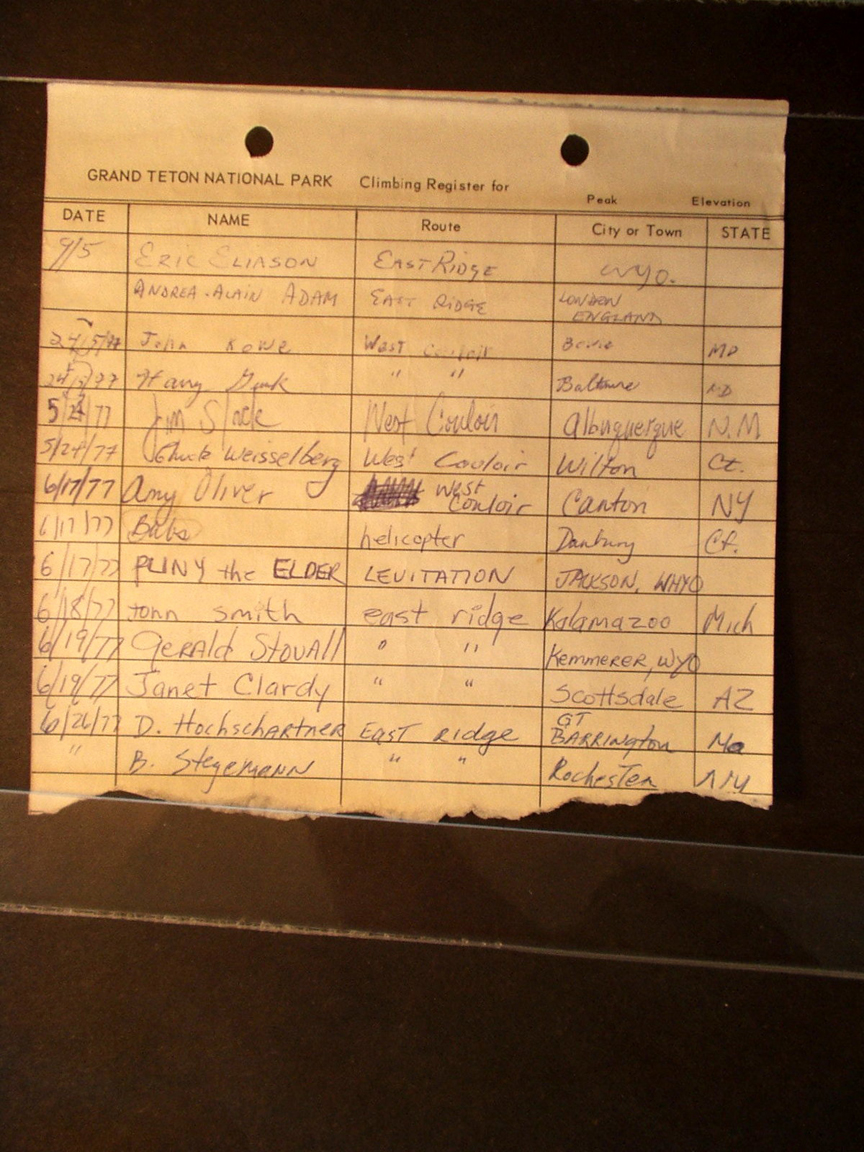 GRAND TETON NATIONAL PARK Climbing Register for
Peak Elevation
DATE NAME Route City or Town STATE
9/5 ERIC ELIASON EAST RIDGE WYO.
ANDREA-ALAIN ADAM EAST RIDGE LONDON ENGLAND
John West Couloir Bowie MD
Harry " " Baltimore MD
5/24/77 Jim Slack West Couloir Albuquerque N.M
5/24/77 Chuck Weisselberg West Couloir Wilton Ct.
6/17/77 Amy Oliver West Couloir Canton NY
6/17/77 Babs helicopter Danbury Ct.
6/17/77 PLINY the ELDER LEVITATION JACKSON, WHYO
6/18/77 John smith east ridge Kalamazoo Mich
6/19/77 GERALD STOVALL " " KEMMERER, WYO
6/19/77 Janet Clardy " " Scottsdale AZ
6/26/77 D. HochschARTNER EAST RIDGE GT BARRINGTON Ma
" B. STEGEMANN " " ROCHESTER NY